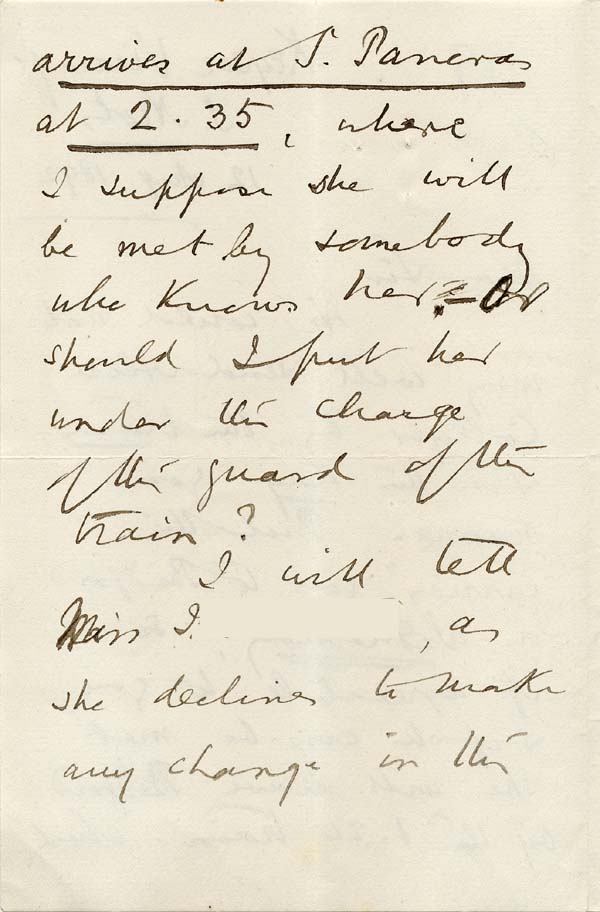 arrives at S. Pancras
at 2.35, where
I suppose she will
be met by somebody
who knows her. – Or
should I put her
under the charge
of the guard of the
train?
I will tell
Miss I. , as
she declines to make
any change in the